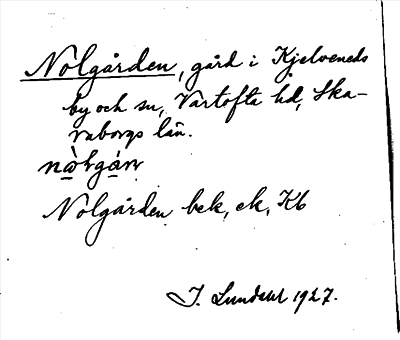 Nolgården, gård i Kjelveneds
by och sn, Vartofta hd, Ska-
raborgs län.
nòlgán
Nolgården bek, ek, Kb
J. Lundahl 1927.